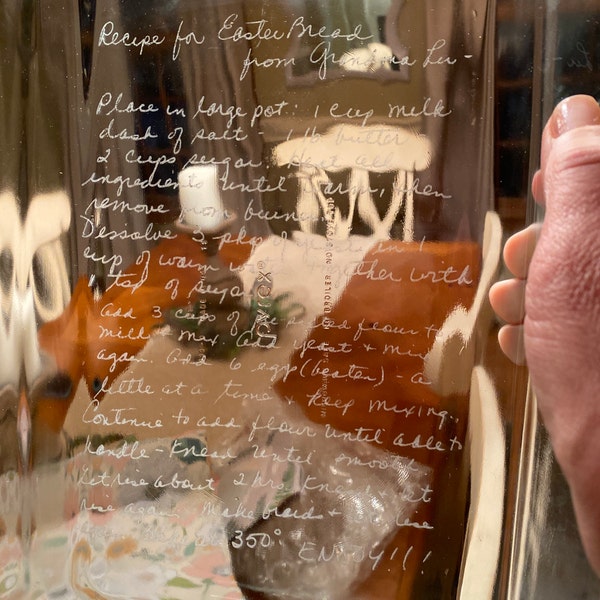 Recipe for Easter Bread
from Grandma Lu -
Place in large pot: 1 cup milk
dash of salt - 1 lb butter
2 cups sugar. Heat all
ingredients until warm, then
remove from burner.
Dessolve 3 pkg of in 1
cup of warm together with
1 tsp of sugar
Add 3 cups of flour to
milk & mix. Add yeast & mix
again. Add 6 eggs (beaten) - a
little at a time & keep mixing.
Continue to add flour until able to
handle - Knead until smooth
Let rise about 2 hrs. Knead let
rise again. Make braids & rise
350°
ENJOY!!!
PYREX®
NO STOVETOP